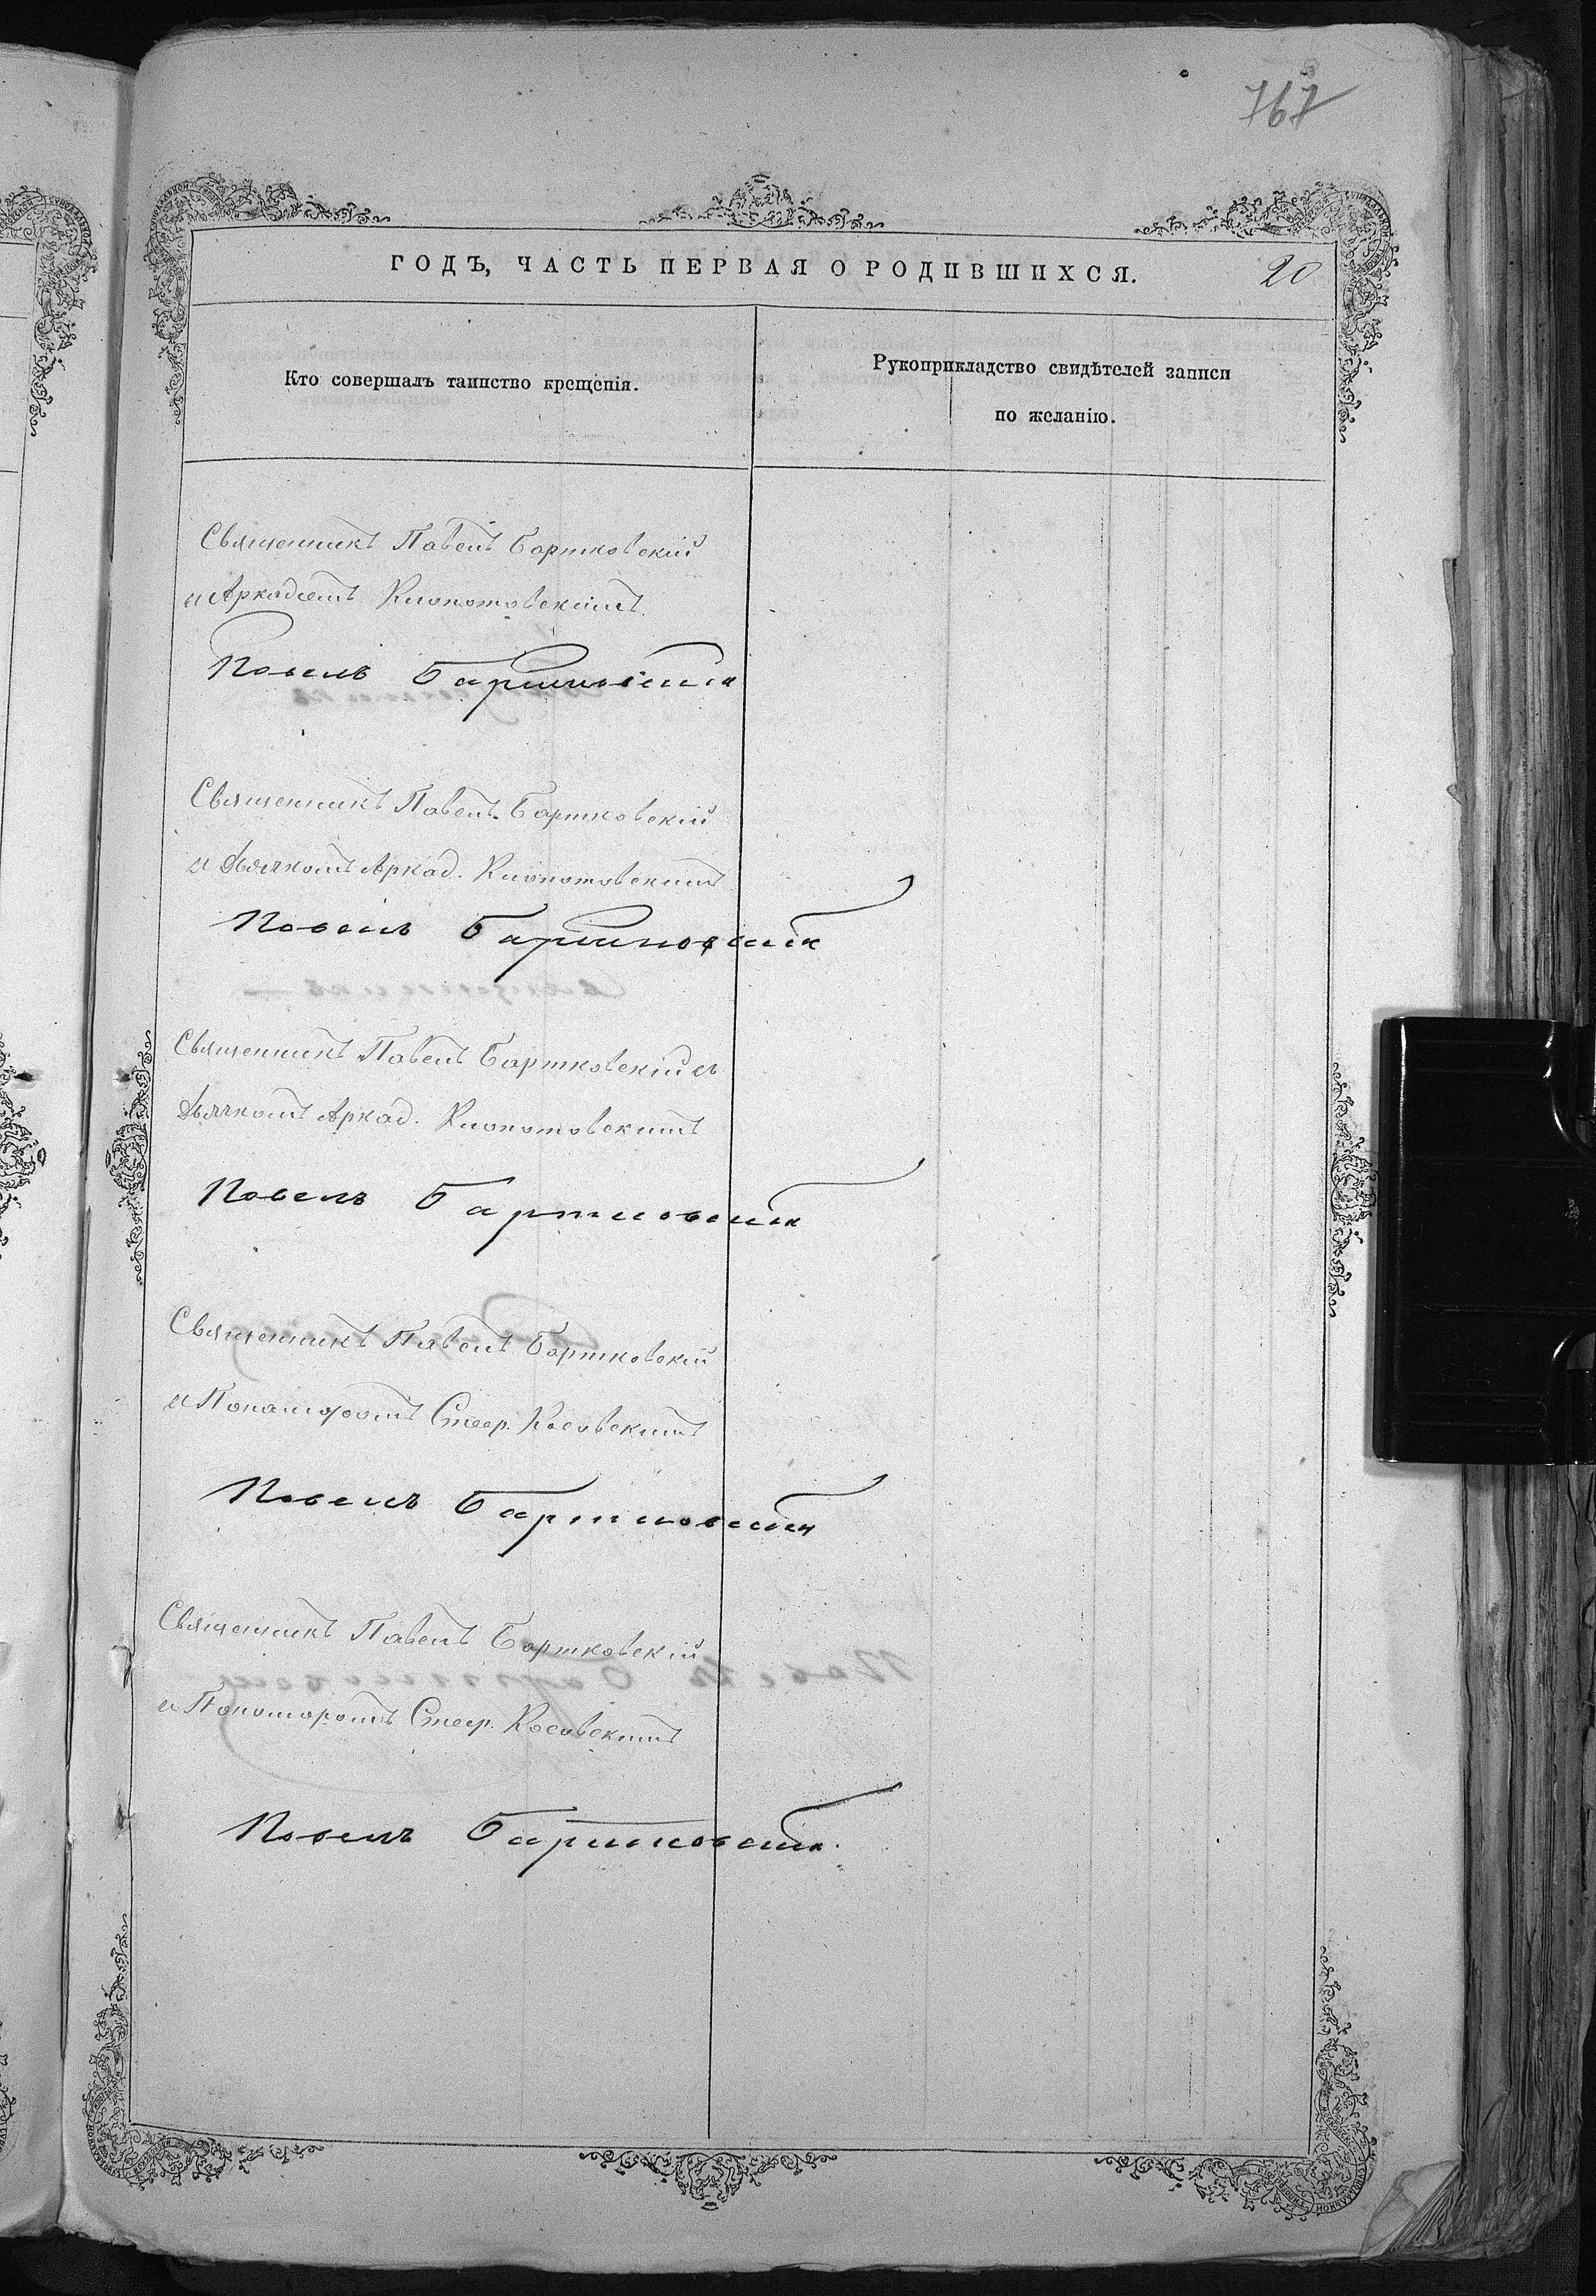 767
ГОДЪ, ЧАСТЬ ПЕРВАЯ О РОДИВШИХСЯ.
20
Кто совершалъ таинство крещенія.
Рукоприкладство свидѣтелей записи
по желанію.
Священникъ Павелъ Бартковскій
и Аркадіемъ Клопотовскимъ
Павелъ Бартковскій
Священникъ Павелъ Бартковскій
и дьячкомъ Аркад. Клопотовскимъ
Павелъ Бартковскій
Священникъ Павелъ Бартковскій съ
дьячкомъ Аркад. Клопотовскимъ
Павелъ Бартковскій
Священникъ Павелъ Бартковскій
и Пономаромъ Косовскимъ
Павелъ Бартковскій
Священникъ Павелъ Бартковскій
и Пономаромъ Косовскимъ
Павелъ Бартковскій